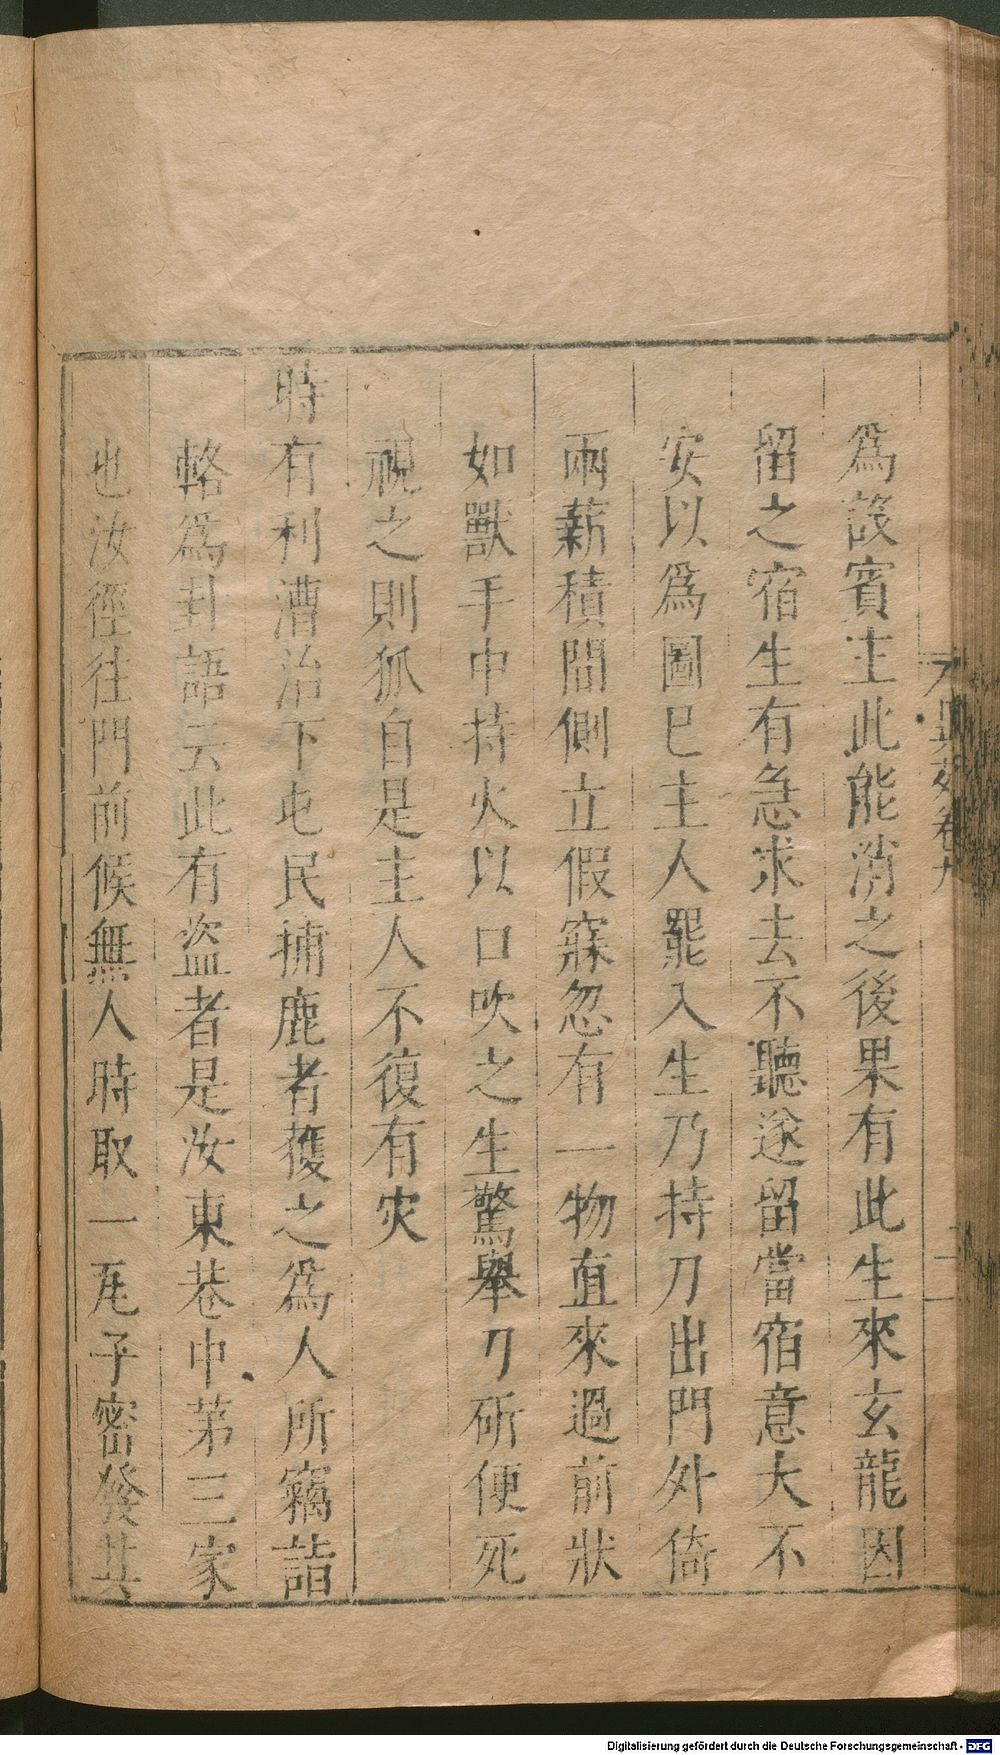 爲設賓主此能消之後果有此生來玄龍因
留之宿生有急求去不聽遂留當宿意大不
安以爲圖已主人罷入生乃持刀出門外倚
兩薪積間側立假寐忽有一物直來過前狀
如獸手中持火以口吹之生驚舉刀斫便死
視之則狐自是主人不復有灾
時有利漕治下屯民捕鹿者獲之爲人所竊詣
輅爲卦語云此有盜者是汝東巷中苐三家
也汝徑往門前候無人時取一瓦子密發其
卷九
Digitalisierung gefördert durch die Deutsche Forschungsgemeinschaft - DFG